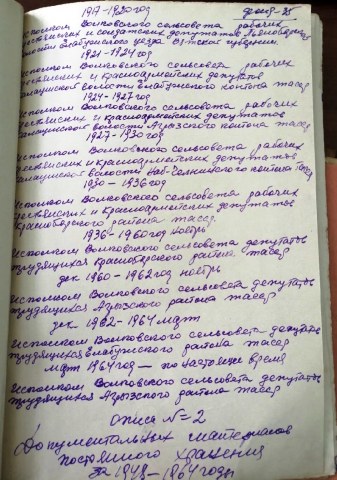 1917-1920 год фонд-25
исполком Волковского сельсовета рабочих
крестьянских и солдатских депутатов
волости Елабужского уезда Вятской губернии
1921-1924 год
исполком Волковского сельсовета рабочих
крестьянских и красноармейских депутатов
волости Елабужского кантона тасср
1924-1927 год
исполком Волковского сельсовета рабочих
крестьянских и красноармейских депутатов
волости Агрызского кантона тасср
1927-1930 год
Исполком Волковского сельсовета рабочих
крестьянских и красноармейских депутатов
волости Наб-Челнинского кантона
1930-1936 год
Исполком Волковского сельсовета рабочих
крестьянских и Красноармейских депутатов
Красноборского района тасср
1936-1960 год ноябрь
исполком Волковского сельсовета депутатов
трудящихся Красноборского района тасср
дек 1960-1962 год ноябрь
исполком Волковского сельсовета депутатов
трудящихся Агрызского района тасср
дек 1962-1964 март
исполком Волковского сельсовета депутатов
трудящихся Елабужского района тасср
март 1964 год — по настоящее время
исполком Волковского сельсовета депутатов
трудящихся Агрызского района тасср
опись N=2
Документальных материалов
постоянного хранения
за 1948-1964 годы